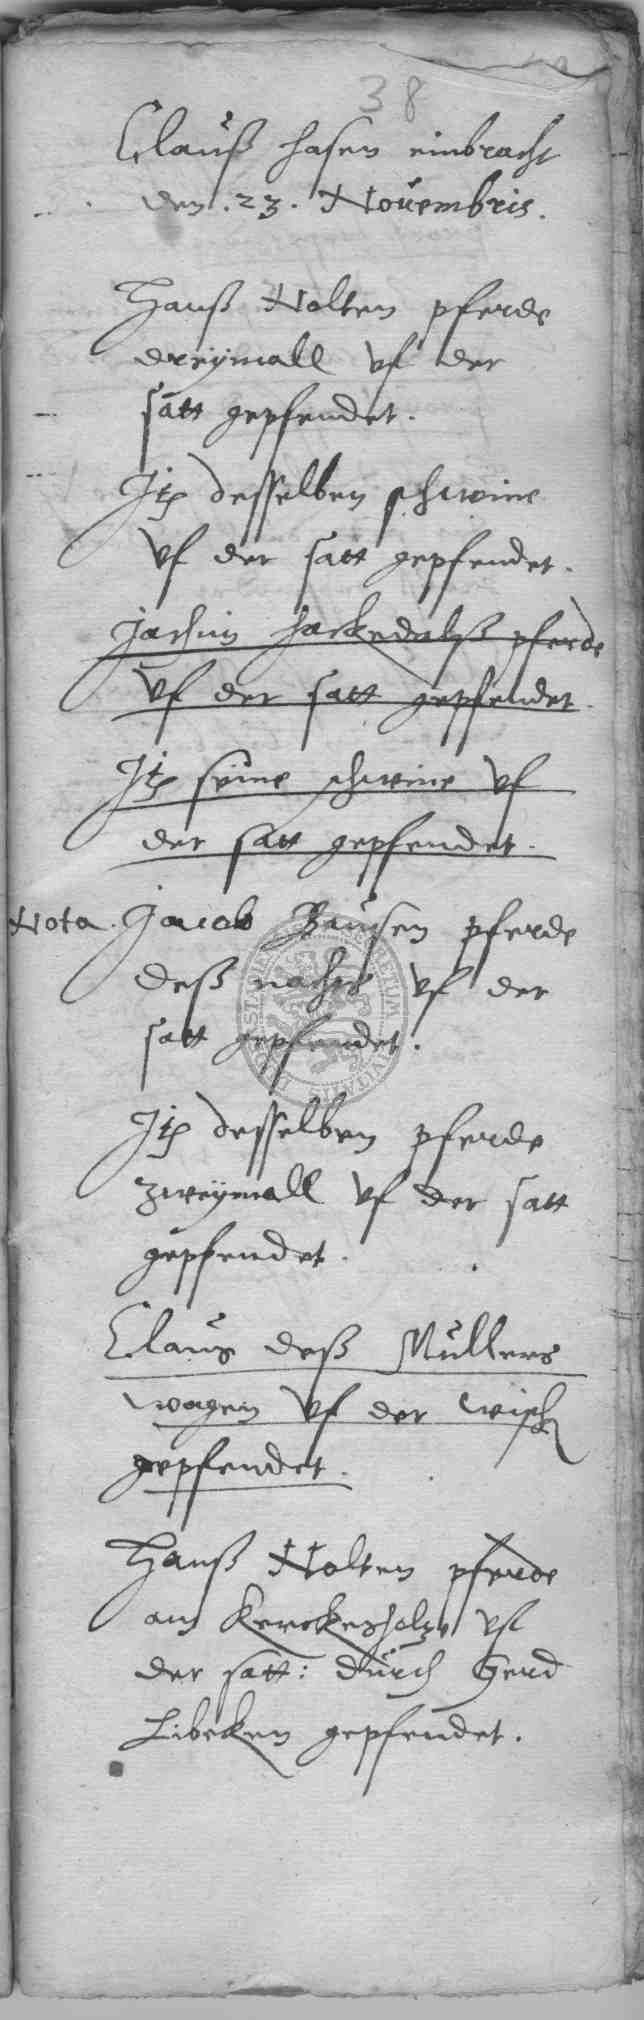 38
Clauß hasen einbracht
den .23. Novembris.
Hanß Nolten pferde
dreymall vf der
satt gepfendet.
Jtz desselben schwine
vf der satt gepfendet.
Jachim hackedalß pferde
vf der satt gepfendet.
Jtz seine schwine vf
der satt gepfendet.
Nota. Jacob Bausen pferde
deß nachts vf der
satt gepfendet.
Jtz desselben pferde
zweymall vf der satt
gepfendet.
Claus deß Mullers
wagen vf der wisch
gepfendet.
Hanß Nolten pferde
am vf
der satt: durch Gerd
Libeken gepfendet.